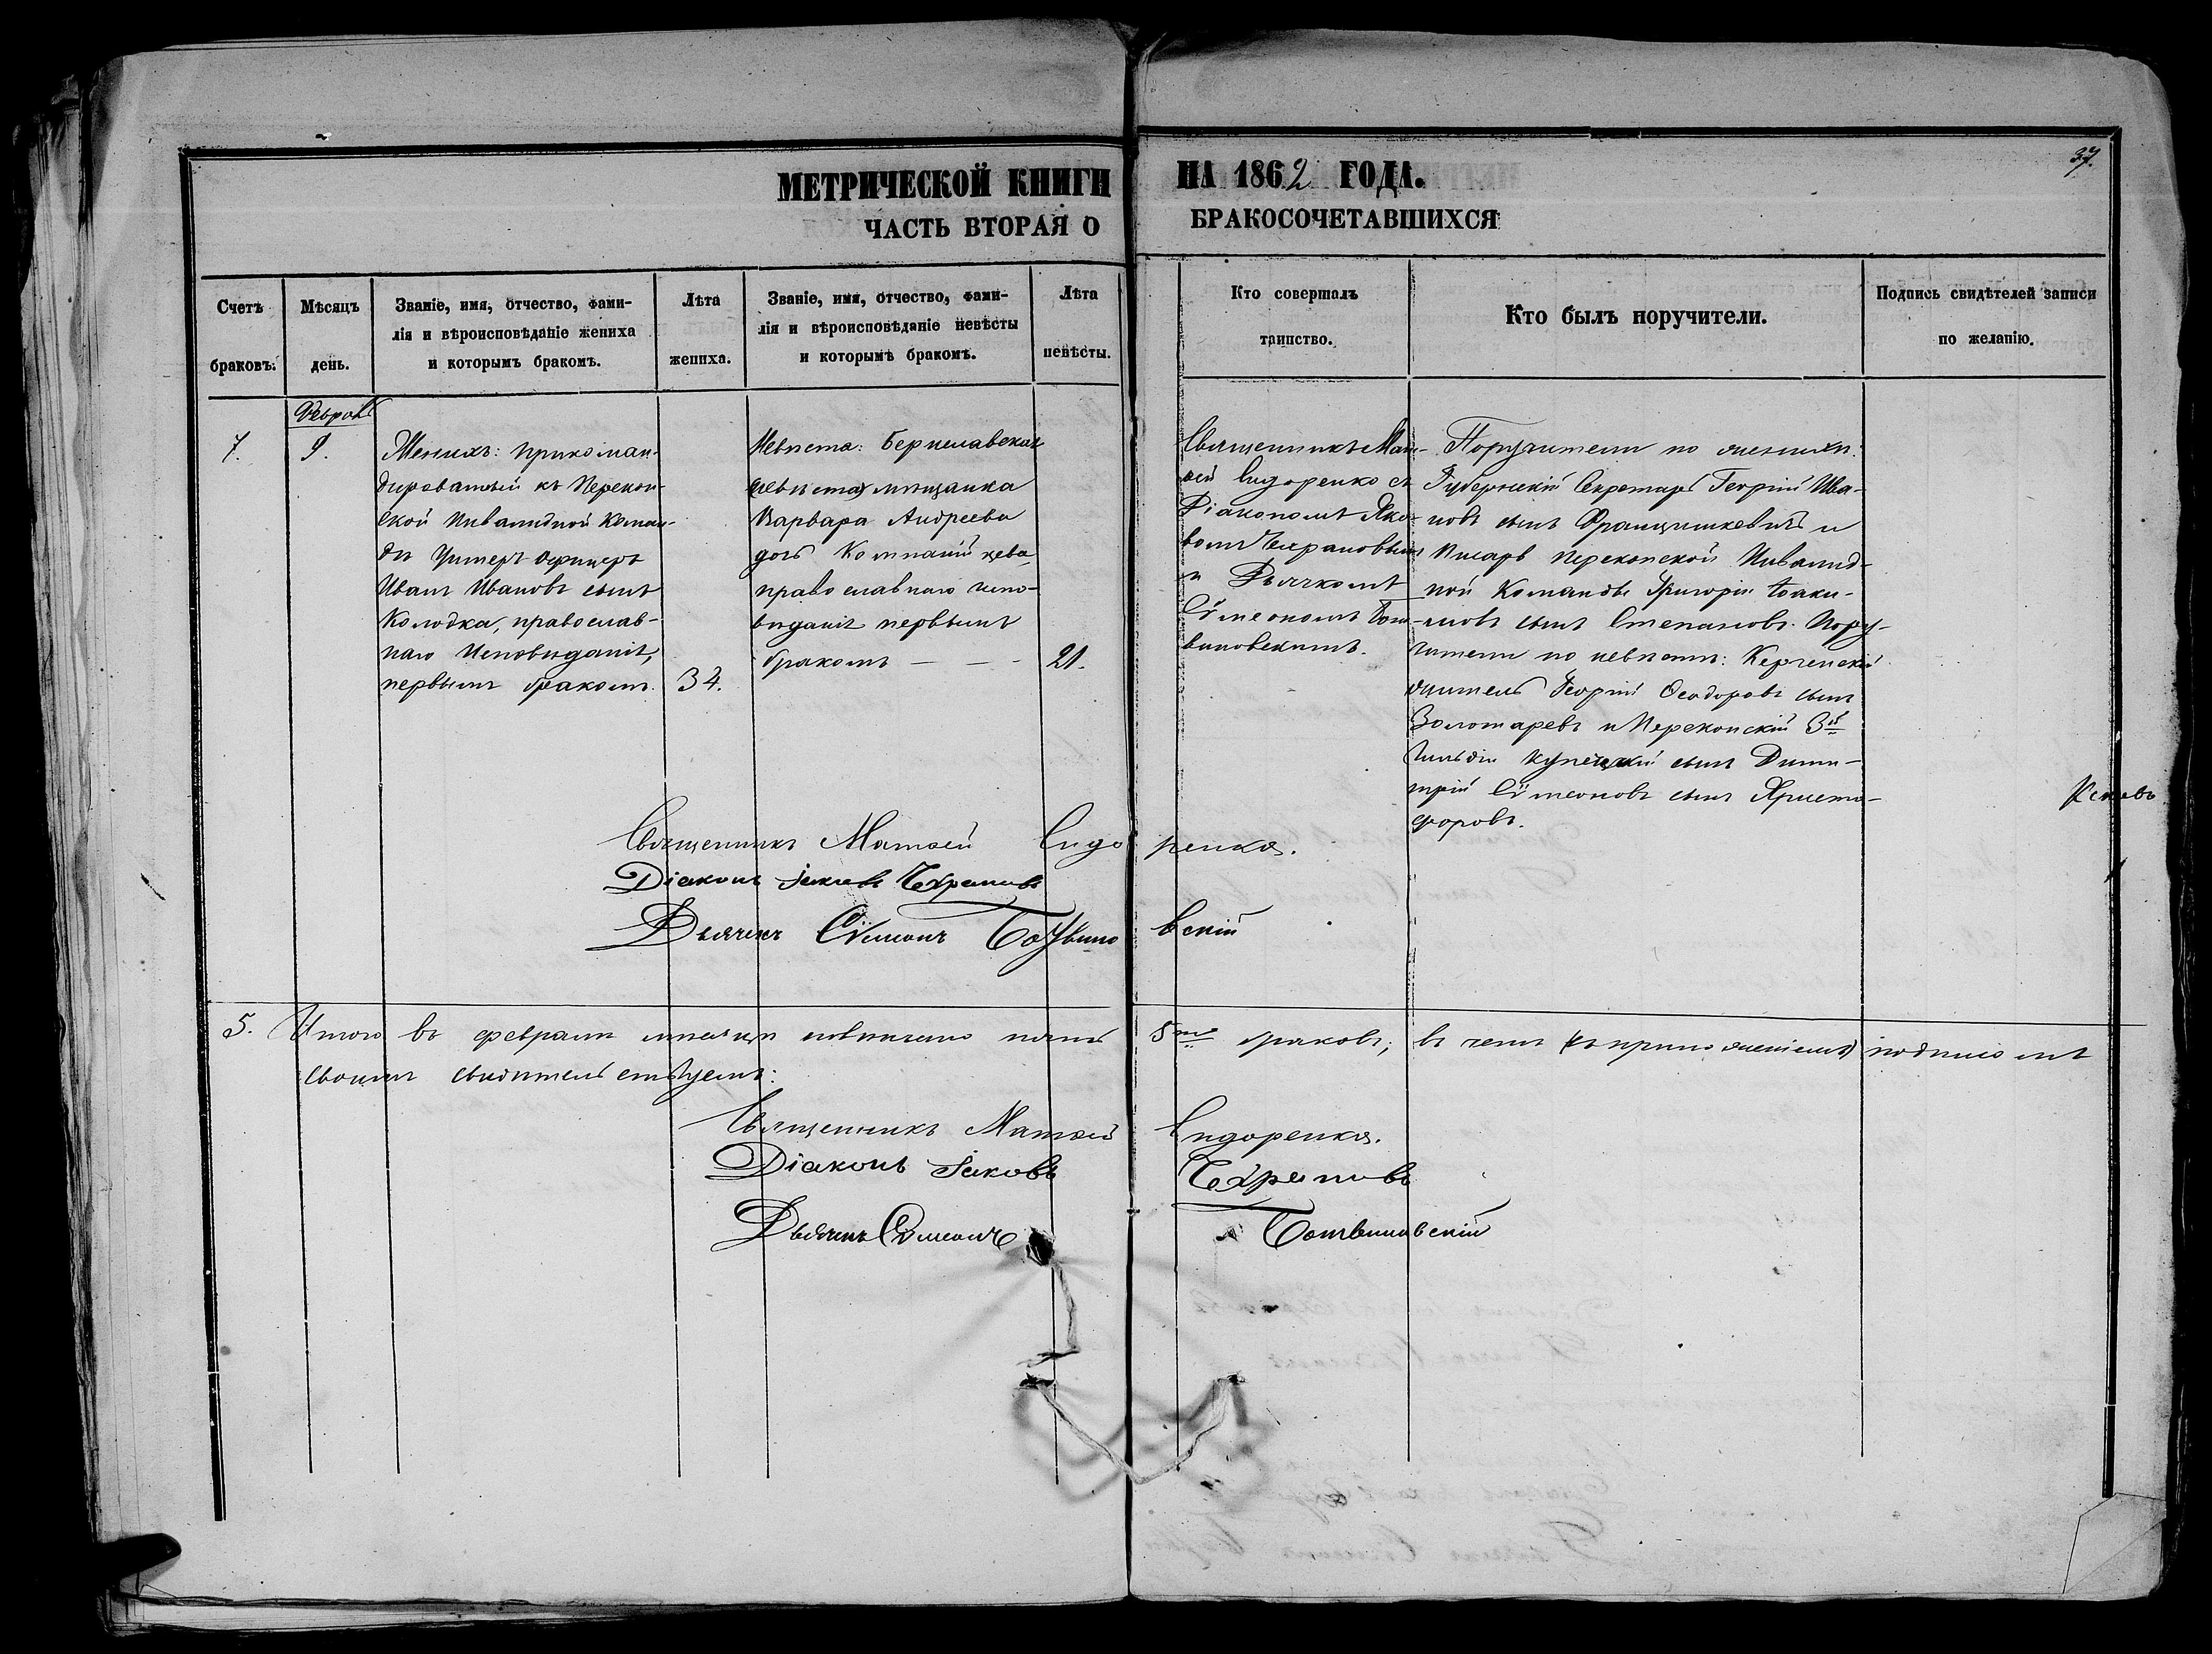 37.
МЕТРИЧЕСКОЙ КНИГИ НА 1862 ГОДА.
ЧАСТЬ ВТОРАЯ О БРАКОСОЧЕТАВШИХСЯ
Счетъ
браковъ.
Мѣсяцъ
день.
Званіе, имя, отчество, фами-
лія и вѣроисповѣданіе жениха
и которымъ бракомъ.
Лѣта
жениха.
Званіе, имя, отчество, фами-
лія и вѣроисповѣданіе невѣсты
и которымъ бракомъ.
Лѣта
невѣсты.
Кто совершалъ
таинство.
Кто былъ поручители.
Подпись свидѣтелей записи
по желанію.
7.
9.
Женихъ: прикоман-
дированный къ Перекоп-
ской Инвалидной Коман-
дѣ Унтеръ Офицеръ
Иванъ Ивановъ сынъ
Колодка, православ-
наго Исповѣданія,
первымъ бракомъ.
34.
Невѣста: Бериславская
мѣщанка
Варвара Андреева
дочь
православнаго испо-
вѣданія первымъ
бракомъ — — -
21.
Священникъ Мат-
ѳей Сидоренко съ
Діакономъ Яко-
вомъ
и Дьячкомъ
Сѵмеономъ Бот-
виновскимъ.
Поручители по женихѣ:
Губернскій Секретарь Георгій Ива-
новъ сынъ Францишкевичъ и
Писарь Перекопской Инвалид-
ной Команды Григорій Іоаки-
мовъ сынъ Степановъ. Пору-
чители по невѣстѣ: Керченскій
житель Георгій Ѳеодоровъ сынъ
Золотаревъ и Перекопскій 3й
Гильдіи Купецкій сынъ Дими-
трій Сѵмеоновъ сынъ Христо-
форовъ.
Священникъ Матѳей Сидоренко.
Діаконъ Іаковъ
Дьячекъ Сѵмеонъ Ботвиновскій
5. Итого въ февралѣ мѣсяцѣ повѣнчано пять 5ть браковъ; въ чемъ подписомъ
своимъ свидѣтельствуемъ:
Священникъ Матѳей Сидоренко.
Діаконъ Іаковъ
Дьячекъ Сѵмеонъ Ботвиновскій